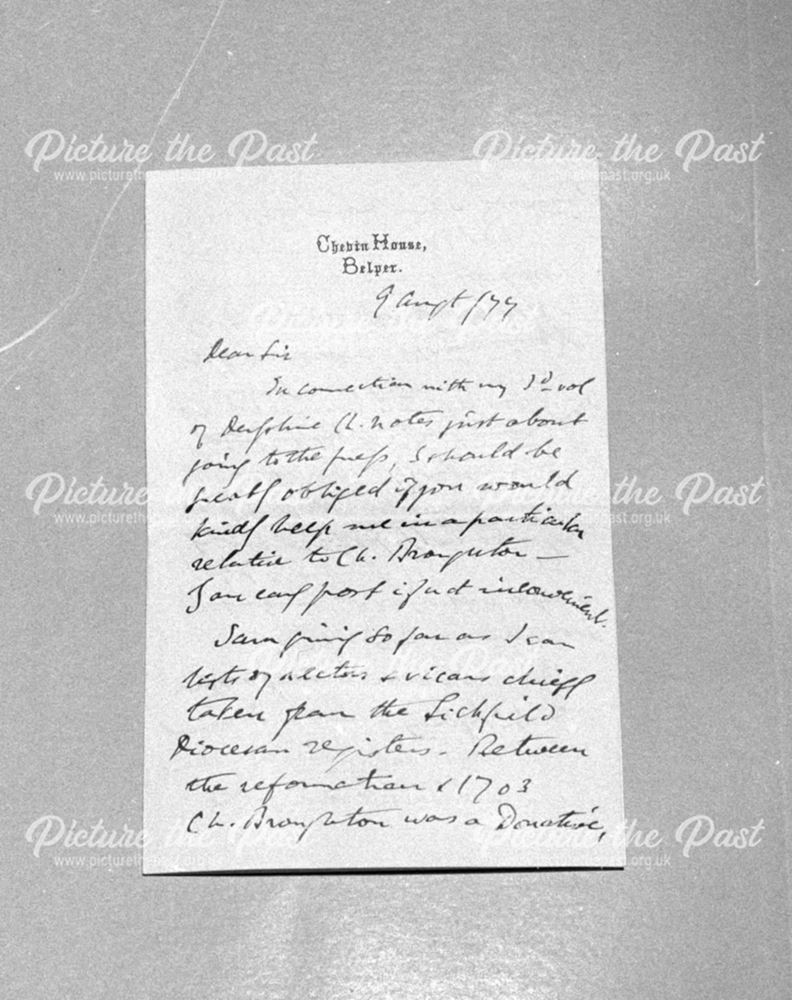 Chevin House,
Belper.
9 Augt /77
Dear Sir
In connection with my 3d vol
of Derbshire Ch. notes just about
going to the press, I should be
greatly obliged if you would
kindly help me in a particular
relative to Ch. Broughton —
by an early post if not inconvenient.
I am giving so far as I can
lists of rectors & vicars chiefly
taken from the Lichfield
Diocesan registers. Between
the reformation & 1703
Ch. Broughton was a Donative,
Picture the Past
www.picturethepast.org.uk
Picture the Past
www.picturethepast.org.uk
Picture the Past
www.picturethepast.org.uk
Picture the Past
www.picturethepast.org.uk
Picture the Past
www.picturethepast.org.uk
Picture the Past
www.picturethepast.org.uk